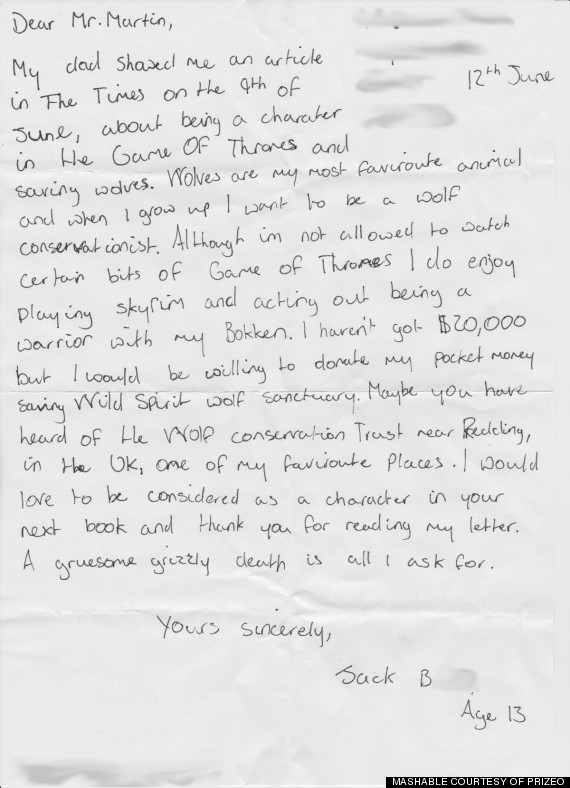 Dear Mr. Martin,
My dad shared me an article
12th June
in The Times on the 9th of
June, about being a charater
in the Game Of Thrones and
saving wolves. Wolves are my most faviroute animal
and when I grow up I want to be a wolf
conservationist. Although im not allowed to watch
certain bits of Game of Thrones I do enjoy
playing skyrim and acting out being a
warrior with my Bokken. I haven't got $20,000
but I would be willing to donate my pocket money
saving Wild Spirit wolf sanctuary. Maybe you have
heard of the Wolf conservation Trust near Redding,
in the UK, one of my faviroute places. I would
love to be considered as a character in your
next book and thank you for reading my letter.
A gruesome grizzly death is all I ask for.
Yours sincerely,
Jack B
Age 13
MASHABLE COURTESY OF PRIZEO